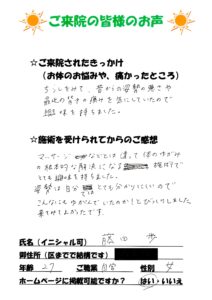 ご来院の皆様のお声
☆ご来院されたきっかけ
(お体のお悩みや、痛かったところ)
ちらしをみて、昔からの姿勢の悪さや
最近の背中の痛みを気にしていたので
興味を持ちました。
☆施術を受けられてからのご感想
マッサージなどとは違って体のゆがみ
の根本的な解決になる 施術で
とても興味を持ちました。
姿勢は自分 ではとても分かりにくいので
こんなにもゆがんでいたのか!とびっくりしました。
来てみてよかったです。
氏名(イニシャル可) 藤田 歩
御住所(区までで結構です)
年齢 27 ご職業 性別 女
ホームページに掲載可能ですか? はい・いいえ